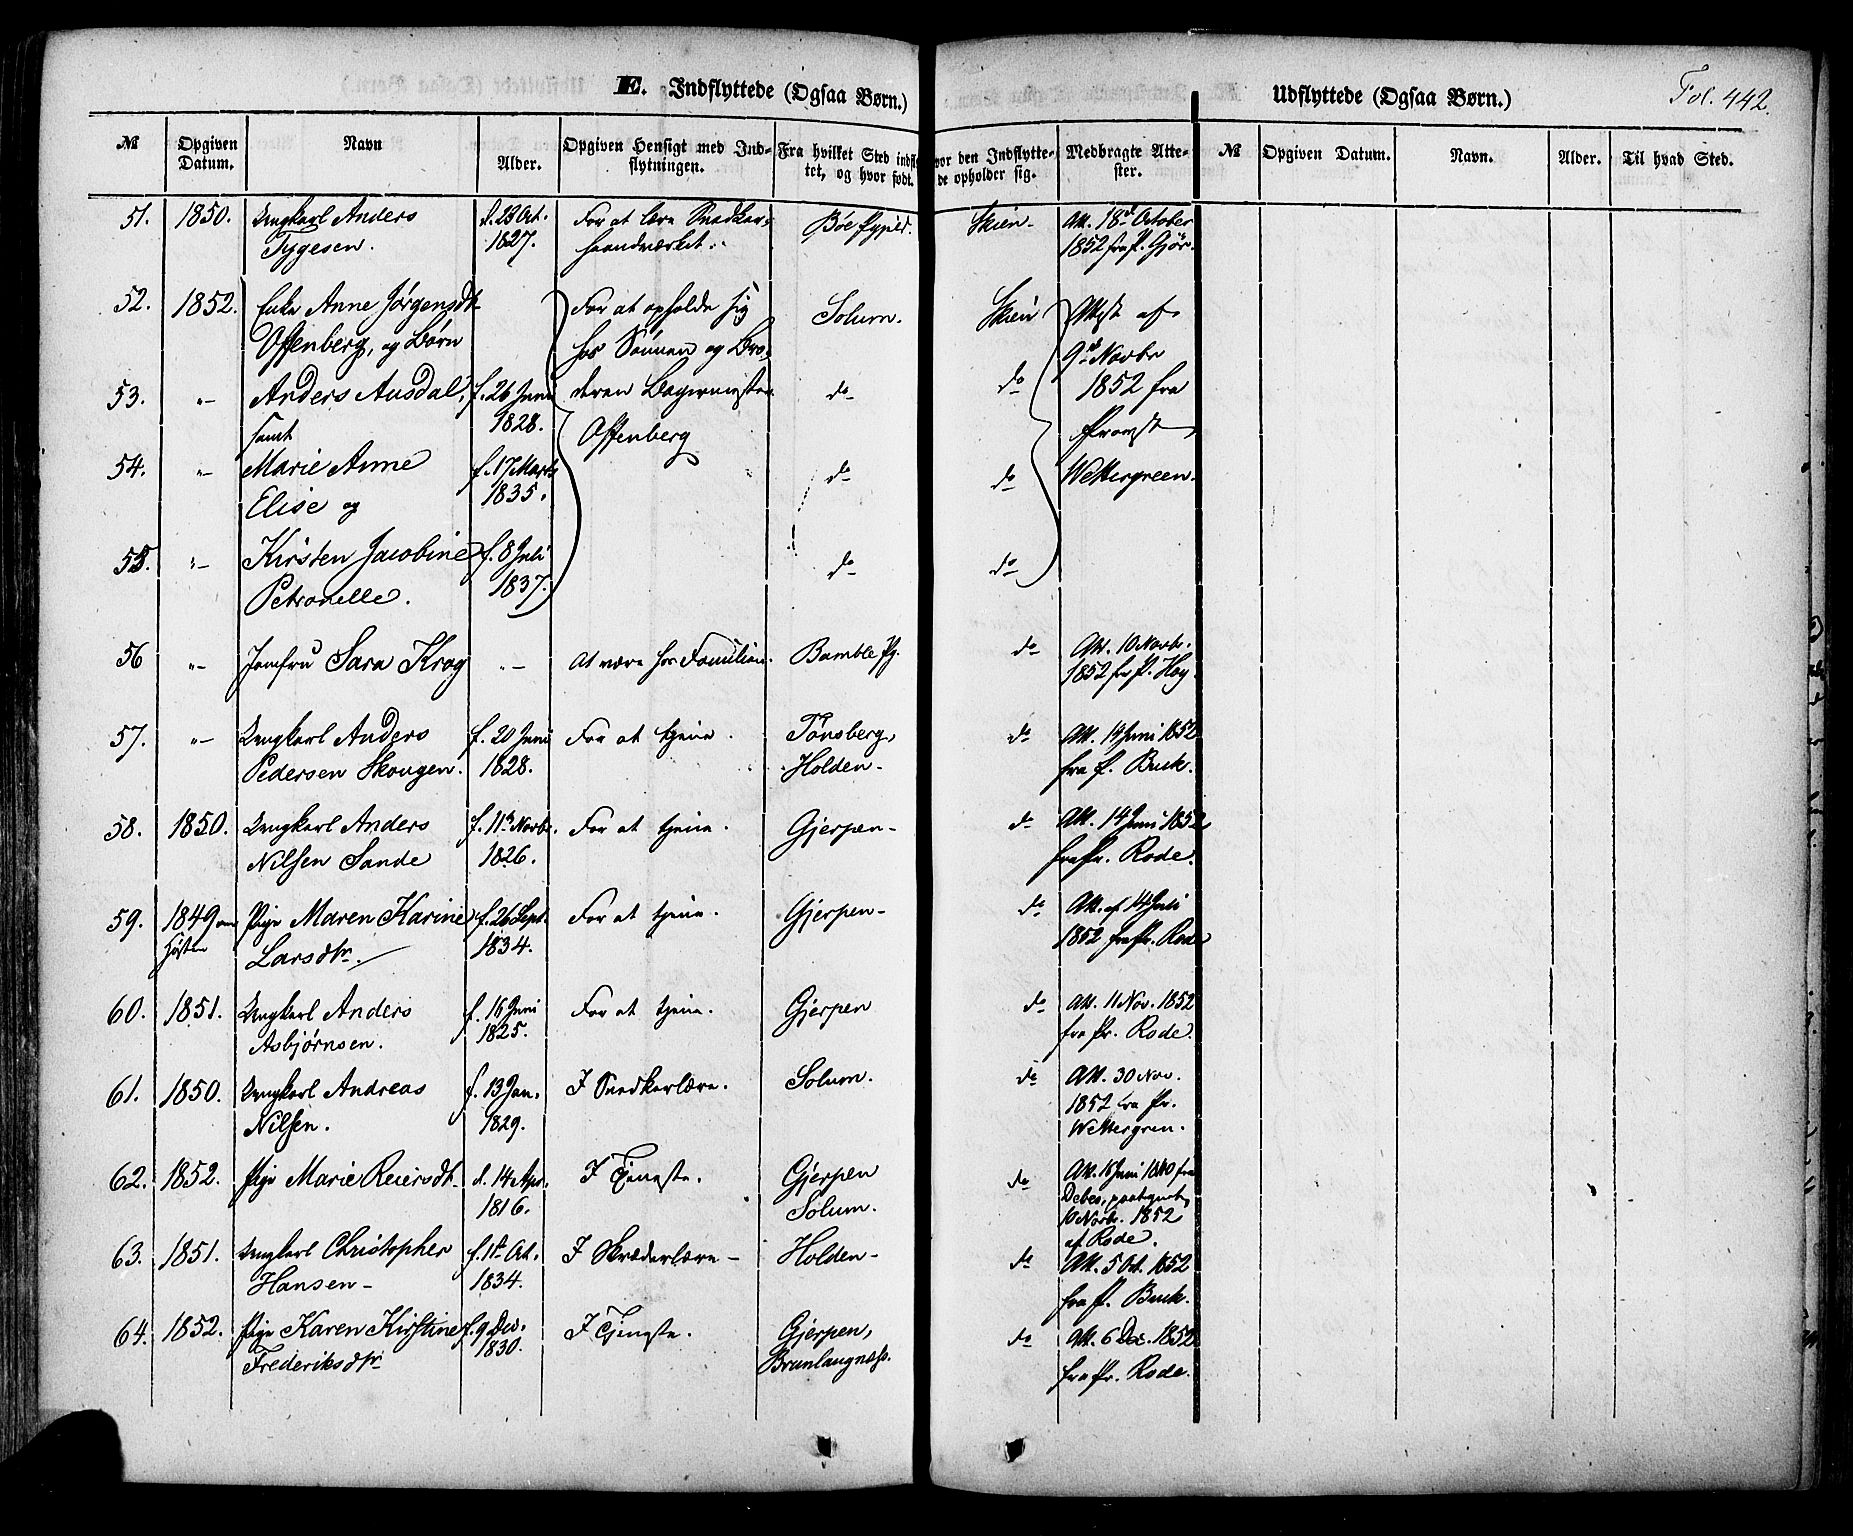 E. Indflyttede (Ogsaa Børn.)
Udflyttede (Ogsaa Børn.)
Fol. 442.
№ Opgiven Datum. Navn Alder. Opgiven Hensigt med Indflytningen. Fra hvilket Sted indflyttet, og hvor født. vor den Indflyttede opholder sig. Medbragte Atte-
ster. № Opgiven Datum. Navn. Alder. Til hvad Sted.
51. 1850. Ungkarl Anders d. 23 Oct. For at lære Snedker- Bøe Skien. Att. 18d October
Tygesen. 1827. haandværket. 1852 fra P. Gjör.
52. 1852. Enke Anne Jørgensdtr For at opholde sig Solum. Skien Attest af
Offenberg, og Børn hos Sönnen og Bro- 9d Novbr
53. "- Anders Ausdal, f. 26 Juni deren Bagermester do do 1852 fra
samt 1828. Offenberg Provst
54. "- Marie Anne f. 17 Marts do do Wettergreen.
Elise og 1835.
55. "- Kirsten Jacobine f. 8 Juli do do
Petronelle. 1837.
56 "- Jomfru Sara Krog "- At være hos Familien. Bamble Pg. do Att. 10 Novbr.
1852 fra P.
57. "- Ungkarl Anders f. 20 Juni For at tjene. Tönsberg, do Att. 14 Juni 1852
Pedersen Skougen. 1828. Holden- fra P. Buck.
58. 1850. Ungkarl Anders f. 11te Novbr. For at tjene. Gjerpen- do Att. 14 Juni 1852
Nilsen Sande 1826. fra Pr. Rode.
59. 1849 om Pige Maren Karine f. 26 Sept. For at tjene. Gjerpen- do Att. af 14 Juli
Høsten Larsdtr. 1834. 1852 fra Pr. Rode
60. 1851. Ungkarl Anders f. 16 Juni For at tjene. Gjerpen do Att. 11 Nov. 1852
Asbjørnsen. 1825. fra Pr. Rode.
61. 1850. Ungkarl Andreas f. 13 Jan. I Snedkerlære. Solum. do Att. 30 Nov.
Nilsen. 1829. 1852 fra Pr.
Wettergren.
62. 1852. Pige Marie Reiersdtr. d. 14 Apr. I Tjeneste. Gjerpen do Att. Juni 1840 fra
1816. Solum. Debes, paategnet
10 Novbr. 1852
af Rode.
63. 1851. Ungkarl Christopher f. 1st Oct. I Skræderlære- Holden- do Att. 5 Oct. 1852
Hansen- 1834. fra P. Buck.
64. 1852. Pige Karen Kirstine f. 9 Dec. I Tjeneste. Gjerpen, do Att. 6 Dec. 1852
Frederiksdtr 1830. Brunlaugnæss. fra Pr. Rode.